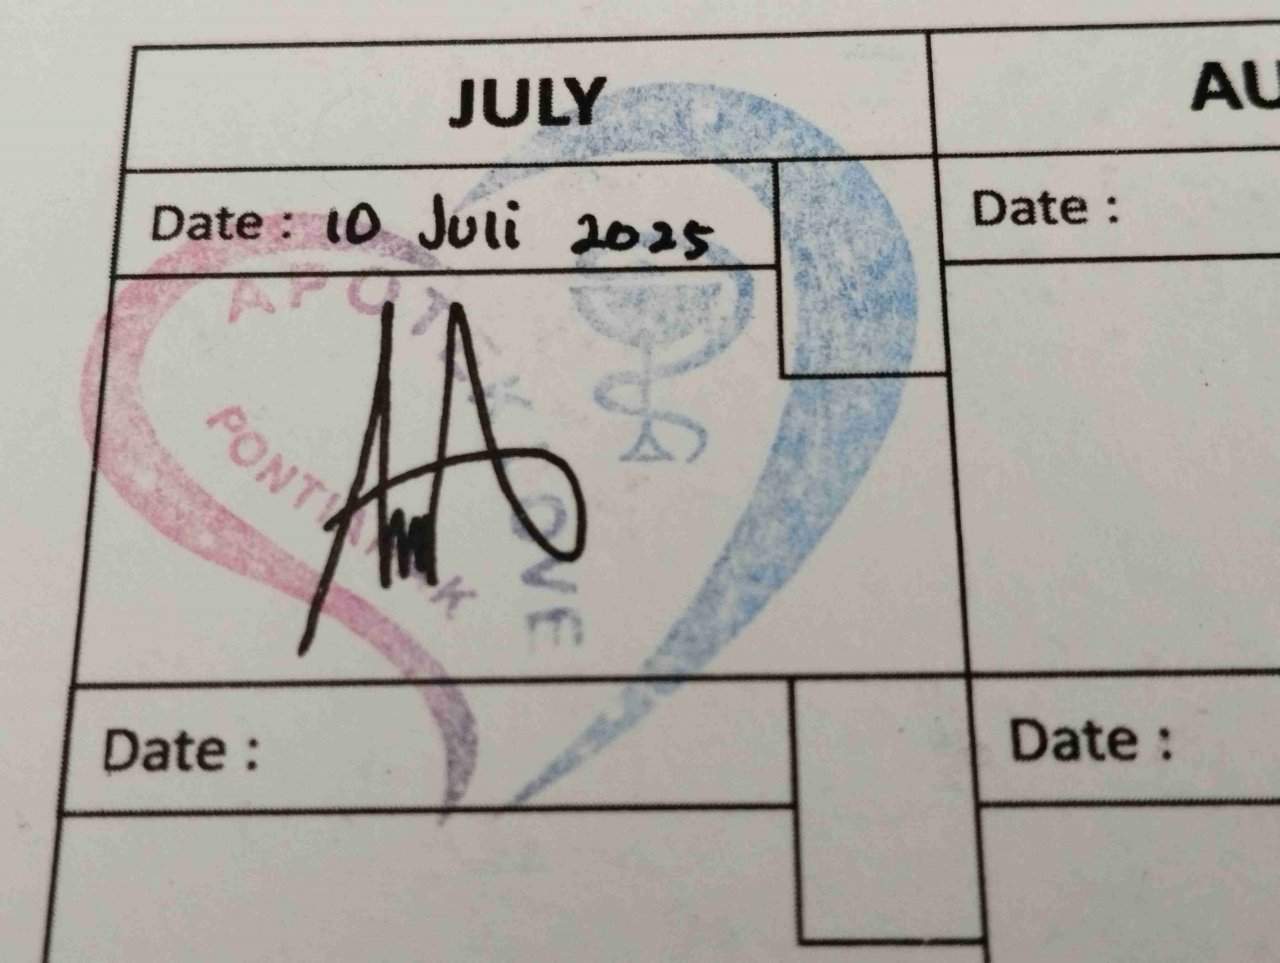 JULY
AU
Date : 10 Juli 2025
Date :
APOTEK ONE
PONTIANAK
Date :
Date :